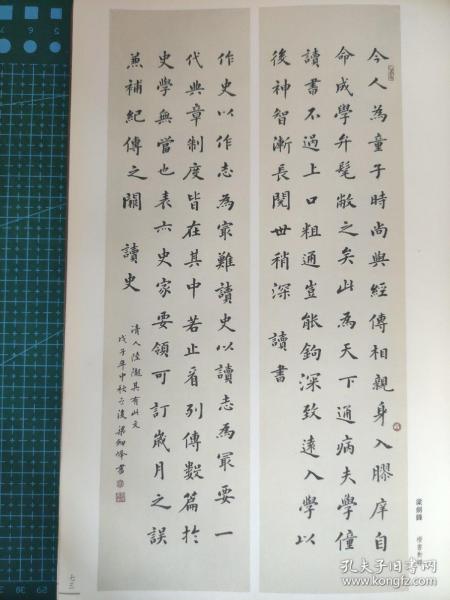 今人為童子時尚與經傳相親身入膠庠自
命成學弁髦敝之矣此為天下通病夫學僮
讀書不過上口粗通豈能鉤深致遠入學以
後神智漸長閱世稍深 讀書
作史以作志為最難讀史以讀志為最要一
代典章制度皆在其中若止看列傳數篇於
史學無當也表亦史家要領可訂歲月之誤
兼補紀傳之闕 讀史
清人陸隴其有此文
戊子年中秋之後梁劍峰書
梁劍鋒 楷書對屏
七三
孔夫子旧书网